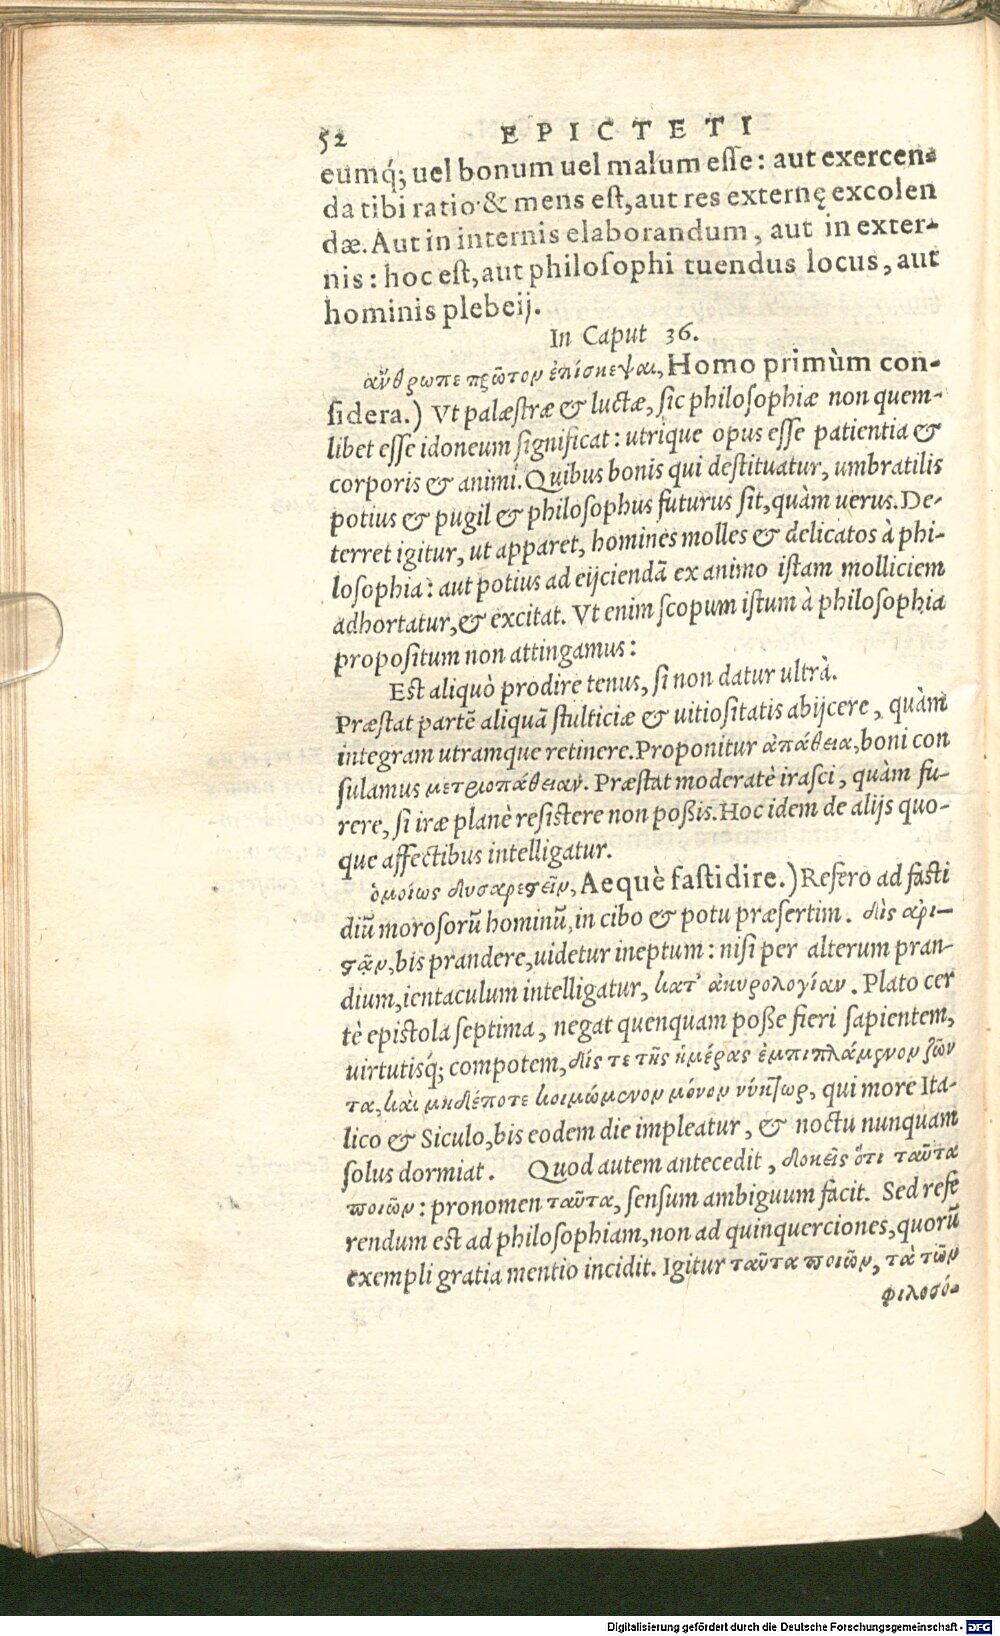 52 EPICTETI
eumq́; uel bonum uel malum eſſe: aut exercen-
da tibi ratio & mens eſt, aut res externę excolen
dæ. Aut in internis elaborandum, aut in exter-
nis: hoc eſt, aut philoſophi tuendus locus, aut
hominis plebeij.
In Caput 36.
ἄνθρωπε πρῶτον ἐπίσκεψαι, Homo primùm con-
ſidera.) Vt palæſtræ & luctæ, ſic philoſophiæ non quem-
libet eſſe idoneum ſignificat: utrique opus eſſe patientia &
corporis & animi. Quibus bonis qui deſtituatur, umbratilis
potius & pugil & philoſophus futurus ſit, quàm uerus. De-
terret igitur, ut apparet, homines molles & delicatos à phi-
loſophia: aut potius ad eijciendã ex animo iſtam molliciem
adhortatur, & excitat. Vt enim ſcopum iſtum à philoſophia
propoſitum non attingamus:
Eſt aliquò prodire tenus, ſi non datur ultrà.
Præſtat partẽ aliquã ſtulticiæ & uitioſitatis abijcere, quàm
integram utramque retinere. Proponitur ἀπάθεια, boni con
ſulamus μετριοπάθειαν. Præſtat moderatè iraſci, quàm fu-
rere, ſi iræ planè reſiſtere non poßis. Hoc idem de alijs quo-
que affectibus intelligatur.
ὁμοίως δυσαρεςεῖν, Aequè faſtidire.) Refero ad faſti
diũ moroſorũ hominũ, in cibo & potu præſertim. δὶς ἀρι-
ςᾶν, bis prandere, uidetur ineptum: niſi per alterum pran-
dium, ientaculum intelligatur, κατ' ἀκυρολογίαν. Plato cer
tè epiſtola ſeptima, negat quenquam poße fieri ſapientem,
uirtutisq́; compotem, δίς τε τῆς ἡμέρας ἐμπιπλάμενον ζῶν
τα, καὶ μηδέποτε κοιμώμενον μόνον νύκτωρ, qui more Ita-
lico & Siculo, bis eodem die impleatur, & noctu nunquam
ſolus dormiat. Quod autem antecedit, δοκεῖς ὅτι ταῦτα
ποιῶν: pronomen ταῦτα, ſenſum ambiguum facit. Sed refe
rendum eſt ad philoſophiam, non ad quinquerciones, quorũ
exempli gratia mentio incidit. Igitur ταῦτα ποιῶν, τὰ τῶν
φιλοσό-
Digitalisierung gefördert durch die Deutsche Forschungsgemeinschaft - DFG